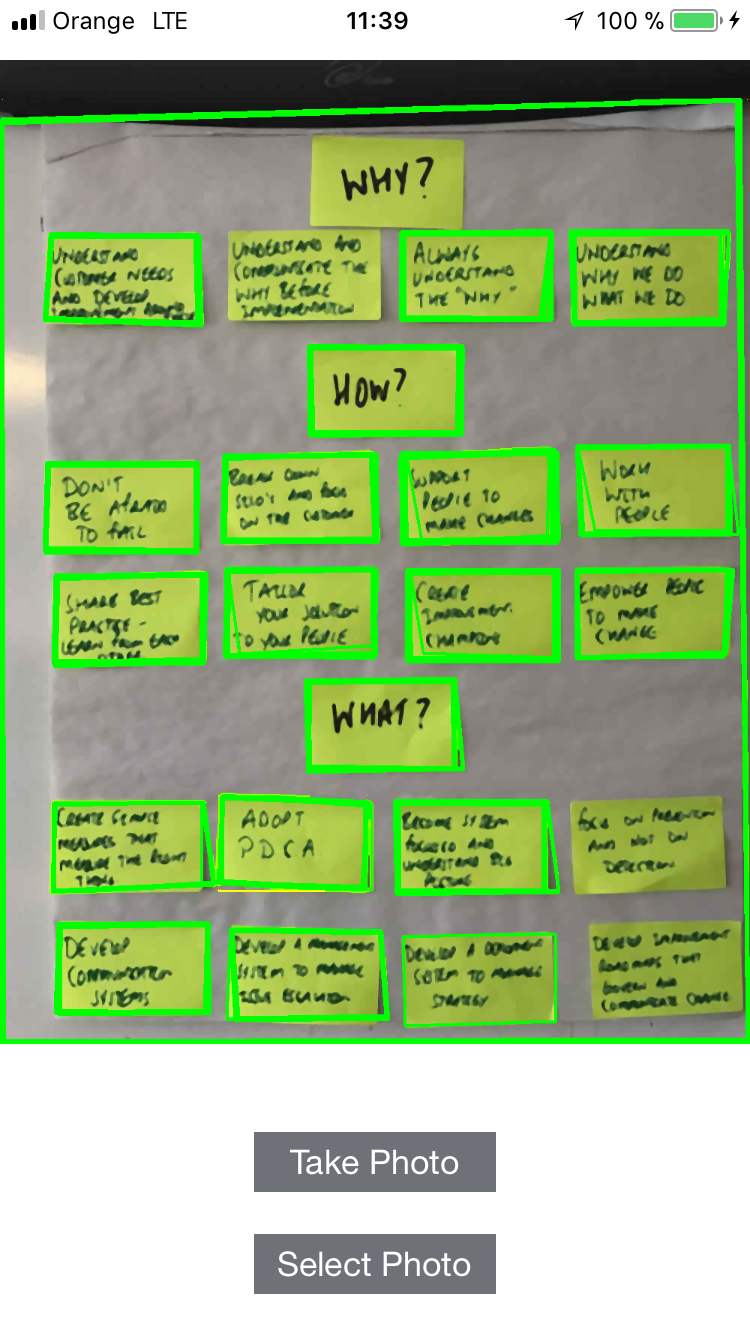 Orange LTE 11:39 100 %
WHY?
UNDERSTAND
CUSTOMER NEEDS
AND DEVELOP
IMPROVEMENT AROUND
UNDERSTAND AND
COMMUNICATE THE
WHY BEFORE
IMPLEMENTATION
ALWAYS
UNDERSTAND
THE "WHY"
UNDERSTAND
WHY WE DO
WHAT WE DO
HOW?
DON'T
BE AFRAID
TO FAIL
BREAK DOWN
SILO'S AND FOCUS
ON THE CUSTOMER
SUPPORT
PEOPLE TO
MAKE CHANGES
WORK
WITH
PEOPLE
SHARE BEST
PRACTISE -
LEARN FROM EACH
OTHER
TAILOR
YOUR SOLUTION
TO YOUR PEOPLE
CREATE
IMPROVEMENT
CHAMPIONS
EMPOWER PEOPLE
TO MAKE
CHANGE
WHAT?
CREATE SERVICE
MEASURES THAT
MEASURE THE RIGHT
THING
ADOPT
PDCA
BECOME SYSTEM
FOCUSED AND
UNDERSTAND BIG
PICTURE
FOCUS ON PREVENTION
AND NOT ON
DETECTION
DEVELOP
COMMUNICATION
SYSTEMS
DEVELOP A MANAGEMENT
SYSTEM TO MANAGE
ISSUE ESCALATION
DEVELOP A DEPLOYMENT
SYSTEM TO MANAGE
STRATEGY
DEVELOP IMPROVEMENT
ROADMAPS THAT
GOVERN AND
COMMUNICATE CHANGE
Take Photo
Select Photo